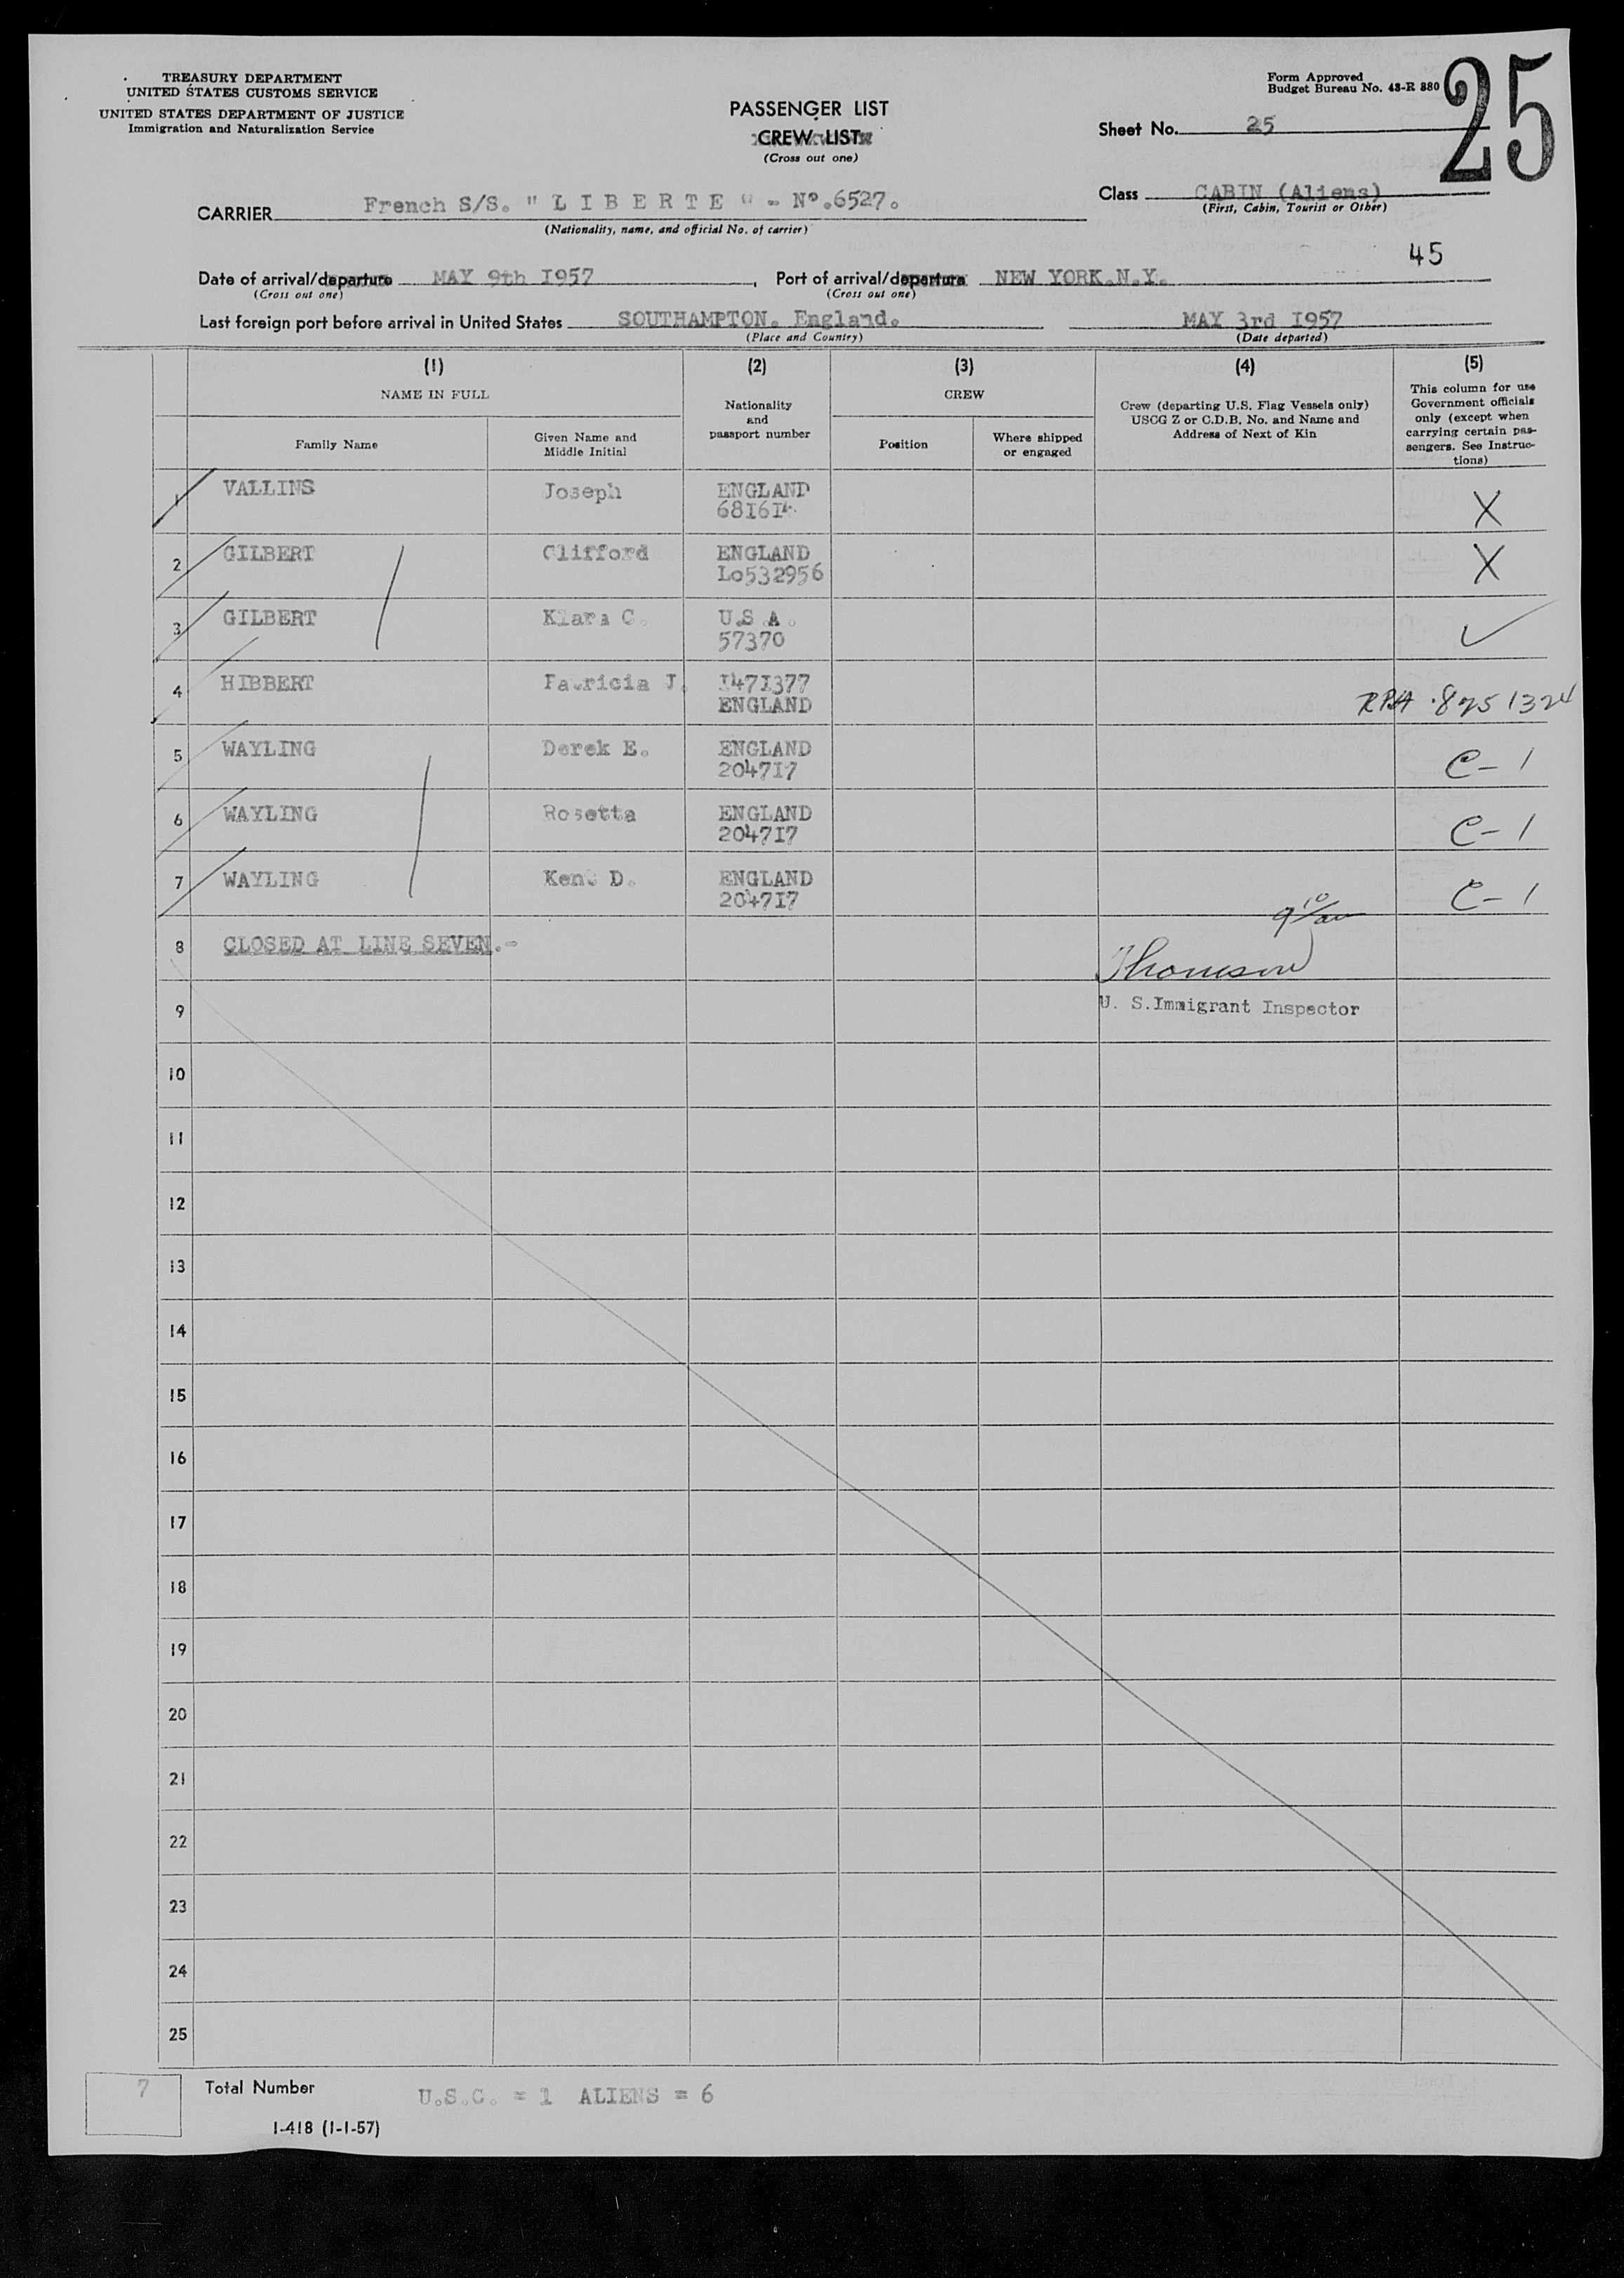 TREASURY DEPARTMENT
UNITED STATES CUSTOMS SERVICE
UNITED STATES DEPARTMENT OF JUSTICE
Immigration and Naturalization Service
Form Approved
Budget Bureau No. 43-R 880
25
PASSENGER LIST
CREW LIST
(Cross out one)
Sheet No. 25
Class CABIN (Aliens)
(First, Cabin, Tourist or Other)
CARRIER French S/S. " L I B E R T E " - No.6527.
(Nationality, name, and official No. of carrier)
45
Date of arrival/departure MAY 9th I957, Port of arrival/departure NEW YORK.N.Y.
(Cross out one) (Cross out one)
Last foreign port before arrival in United States SOUTHAMPTON. England. MAY 3rd I957
(Place and Country) (Date departed)
(1) (2) (3) (4) (5)
NAME IN FULL
Family Name
Given Name and
Middle Initial
Nationality
and
passport number
CREW
Position
Where shipped
or engaged
Crew (departing U.S. Flag Vessels only)
USCG Z or C.D.B. No. and Name and
Address of Next of Kin
This column for use
Government officials
only (except when
carrying certain pas-
sengers. See Instruc-
tions)
1 VALLINS Joseph ENGLAND X
68I6I4
2 GILBERT Clifford ENGLAND X
Lo532956
3 GILBERT Klara C. U.S.A.
57370
4 HIBBERT Patricia J. I47I377
ENGLAND
5 WAYLING Derek E. ENGLAND C-1
2047I7
6 WAYLING Rosetta ENGLAND C-1
2047I7
7 WAYLING Kent D. ENGLAND C-1
2047I7
8 CLOSED AT LINE SEVEN.-
Thomson
9 U. S.Immigrant Inspector
10
11
12
13
14
15
16
17
18
19
20
21
22
23
24
25
7 Total Number U.S.C. = 1 ALIENS = 6
I-418 (1-1-57)